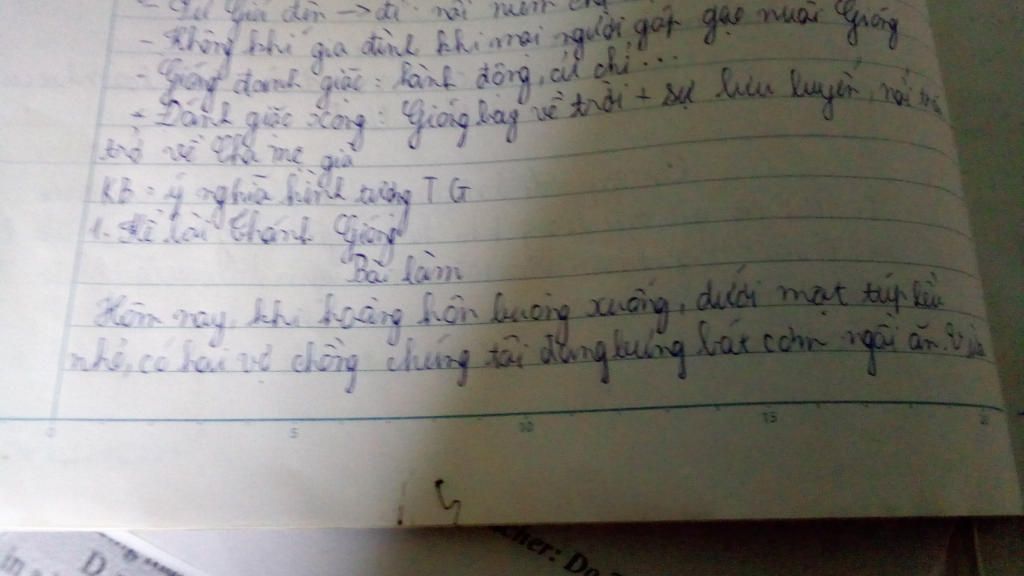 - Sứ giả đến → đi nói
- Không khí gia đình khi mọi người góp gạo nuôi Gióng
- Gióng đánh giặc: hành động, cử chỉ...
+ Đánh giặc xong: Gióng bay về trời + sự lưu luyến, nói
trở về cha mẹ già
KB: ý nghĩa hình tượng TG
1. Kể lại Thánh Gióng
Bài làm
Hôm nay, khi hoàng hôn buông xuống, dưới một túp lều
nhỏ, có hai vợ chồng chúng tôi đang bưng bát cơm ngồi ăn.
0 5 10 15
cher: Do
in a
D